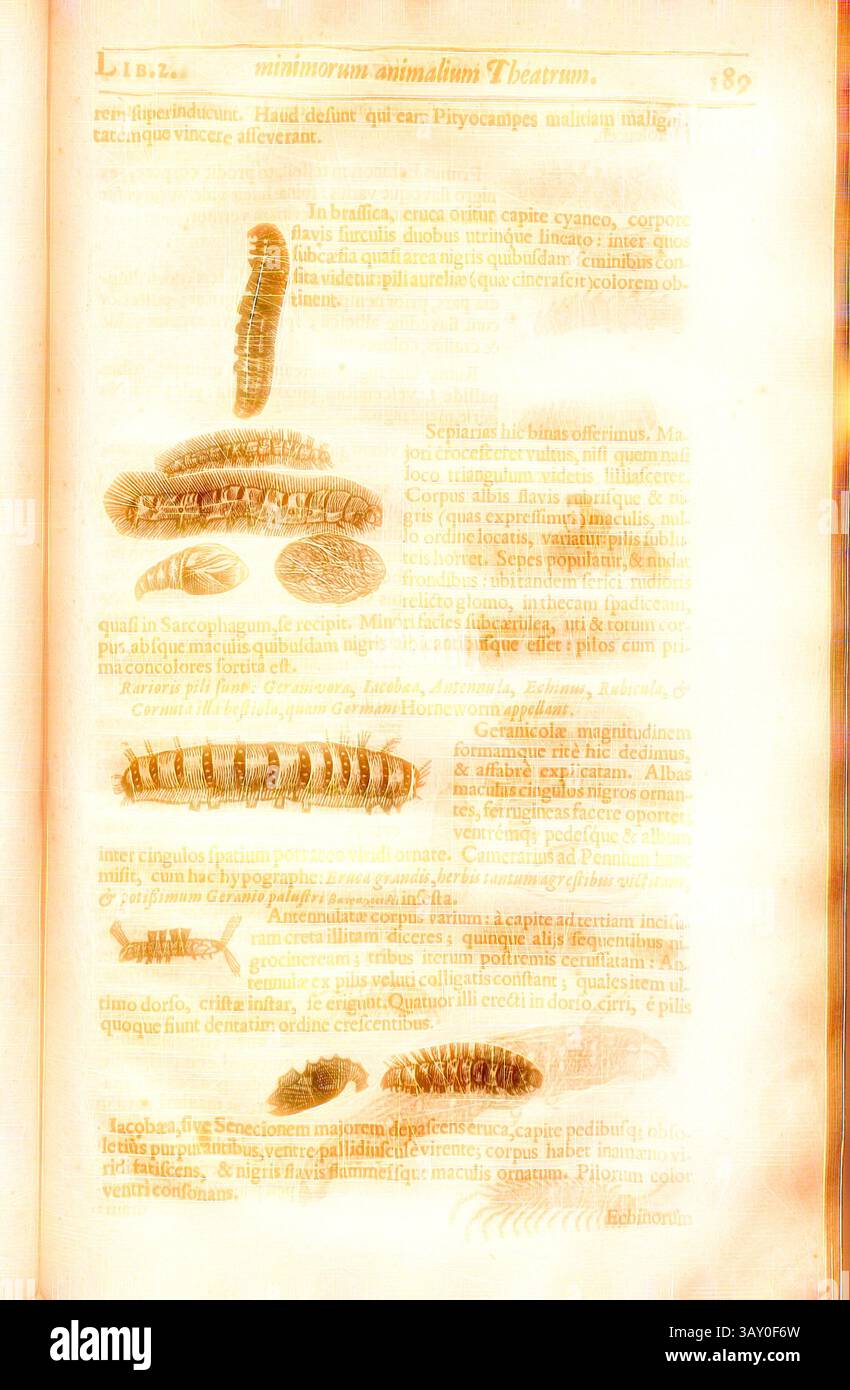 LIB. 2. minimorum animalium Theatrum. 189
rem superinducunt. Haud desunt qui eam Pityocampes malitiam maligni-
tatemque vincere asseverant.
In brassica, eruca oritur capite cyaneo, corpore
flavis surculis duobus utrinque lineato: inter quos
subcæsia quasi area nigris quibusdam seminibus con-
sita videtur: pili aureliæ (quæ cinerascit) colorem ob-
tinent.
Sepiarias hic binas offerimus. Ma-
jori croceſceret vultus, niſi quem naſi
loco triangulum videtis lilliaſceret.
Corpus albis flavis rubriſque & ni-
gris (quas expreſſimus) maculis, nul-
lo ordine locatis, variatur: pilis ſublu-
teis horret. Sepes populatur, & nudat
frondibus: ubi tandem ſerici rudioris
relicto glomo, in thecam ſpadiceam,
quaſi in Sarcophagum, ſe recipit. Minori facies ſubcærulea, uti & totum cor-
pus abſque maculis quibuſdam nigris
ma concolores ſortita eſt.
Rarioris pili ſunt: Geranivora, Iacobæa, Antennula, Echinus, Rubicula, &
Cornuta illa beſtiola, quam Germani Horneworm appellant.
Geranicolæ magnitudinem
formamque ritè hic dedimus,
& affabrè explicatam. Albas
maculas cingulos nigros ornan-
tes, ferrugineas facere oportet:
ventrémq; pedeſque & album
inter cingulos ſpatium porraceo viridi ornate. Camerarius ad Pennium hanc
miſit, cum hac hypographe: Eruca grandis, herbis tantum agreſtibus victitans,
& potiſſimum Geranio paluſtri infeſta.
Antennulatæ corpus varium: à capite ad tertiam inciſu-
ram creta illitam diceres; quinque aliis ſequentibus ni-
grocineream; tribus iterum poſtremis ceruſſatam: An-
tennulæ ex pilis veluti colligatis conſtant; quales item ul-
timo dorſo, criſtæ inſtar, ſe erigunt. Quatuor illi erecti in dorſo cirri, è pilis
quoque fiunt dentatim ordine creſcentibus.
Iacobæa, ſive Senecionem majorem depaſcens eruca, capite pedibuſq; obſo-
letiùs purpurantibus, ventre pallidiuſculè virente; corpus habet inamœno vi-
ridi fatiſcens, & nigris flavis flammeſſque maculis ornatum. Pilorum color
ventri conſonans.
Echinorum
alamy
Image ID: 3AY0F6W
www.alamy.com